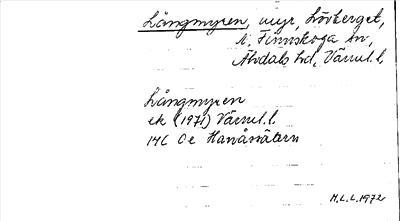 Långmyren, myr, Lövberget,
N. Finnskoga sn,
Älvdals hd, Värml. l.
Långmyren
ek (1971) Värml. l.
14C 0e Hanåsätern
M.L.L. 1972